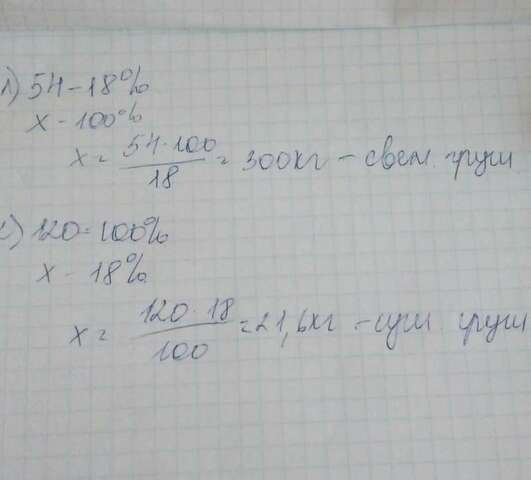 1) 54 - 18%
x - 100%
x = 54·100 / 18 = 300кг - свеж. груш
2) 120 = 100%
x - 18%
x = 120·18 / 100 = 21,6кг - суш груш